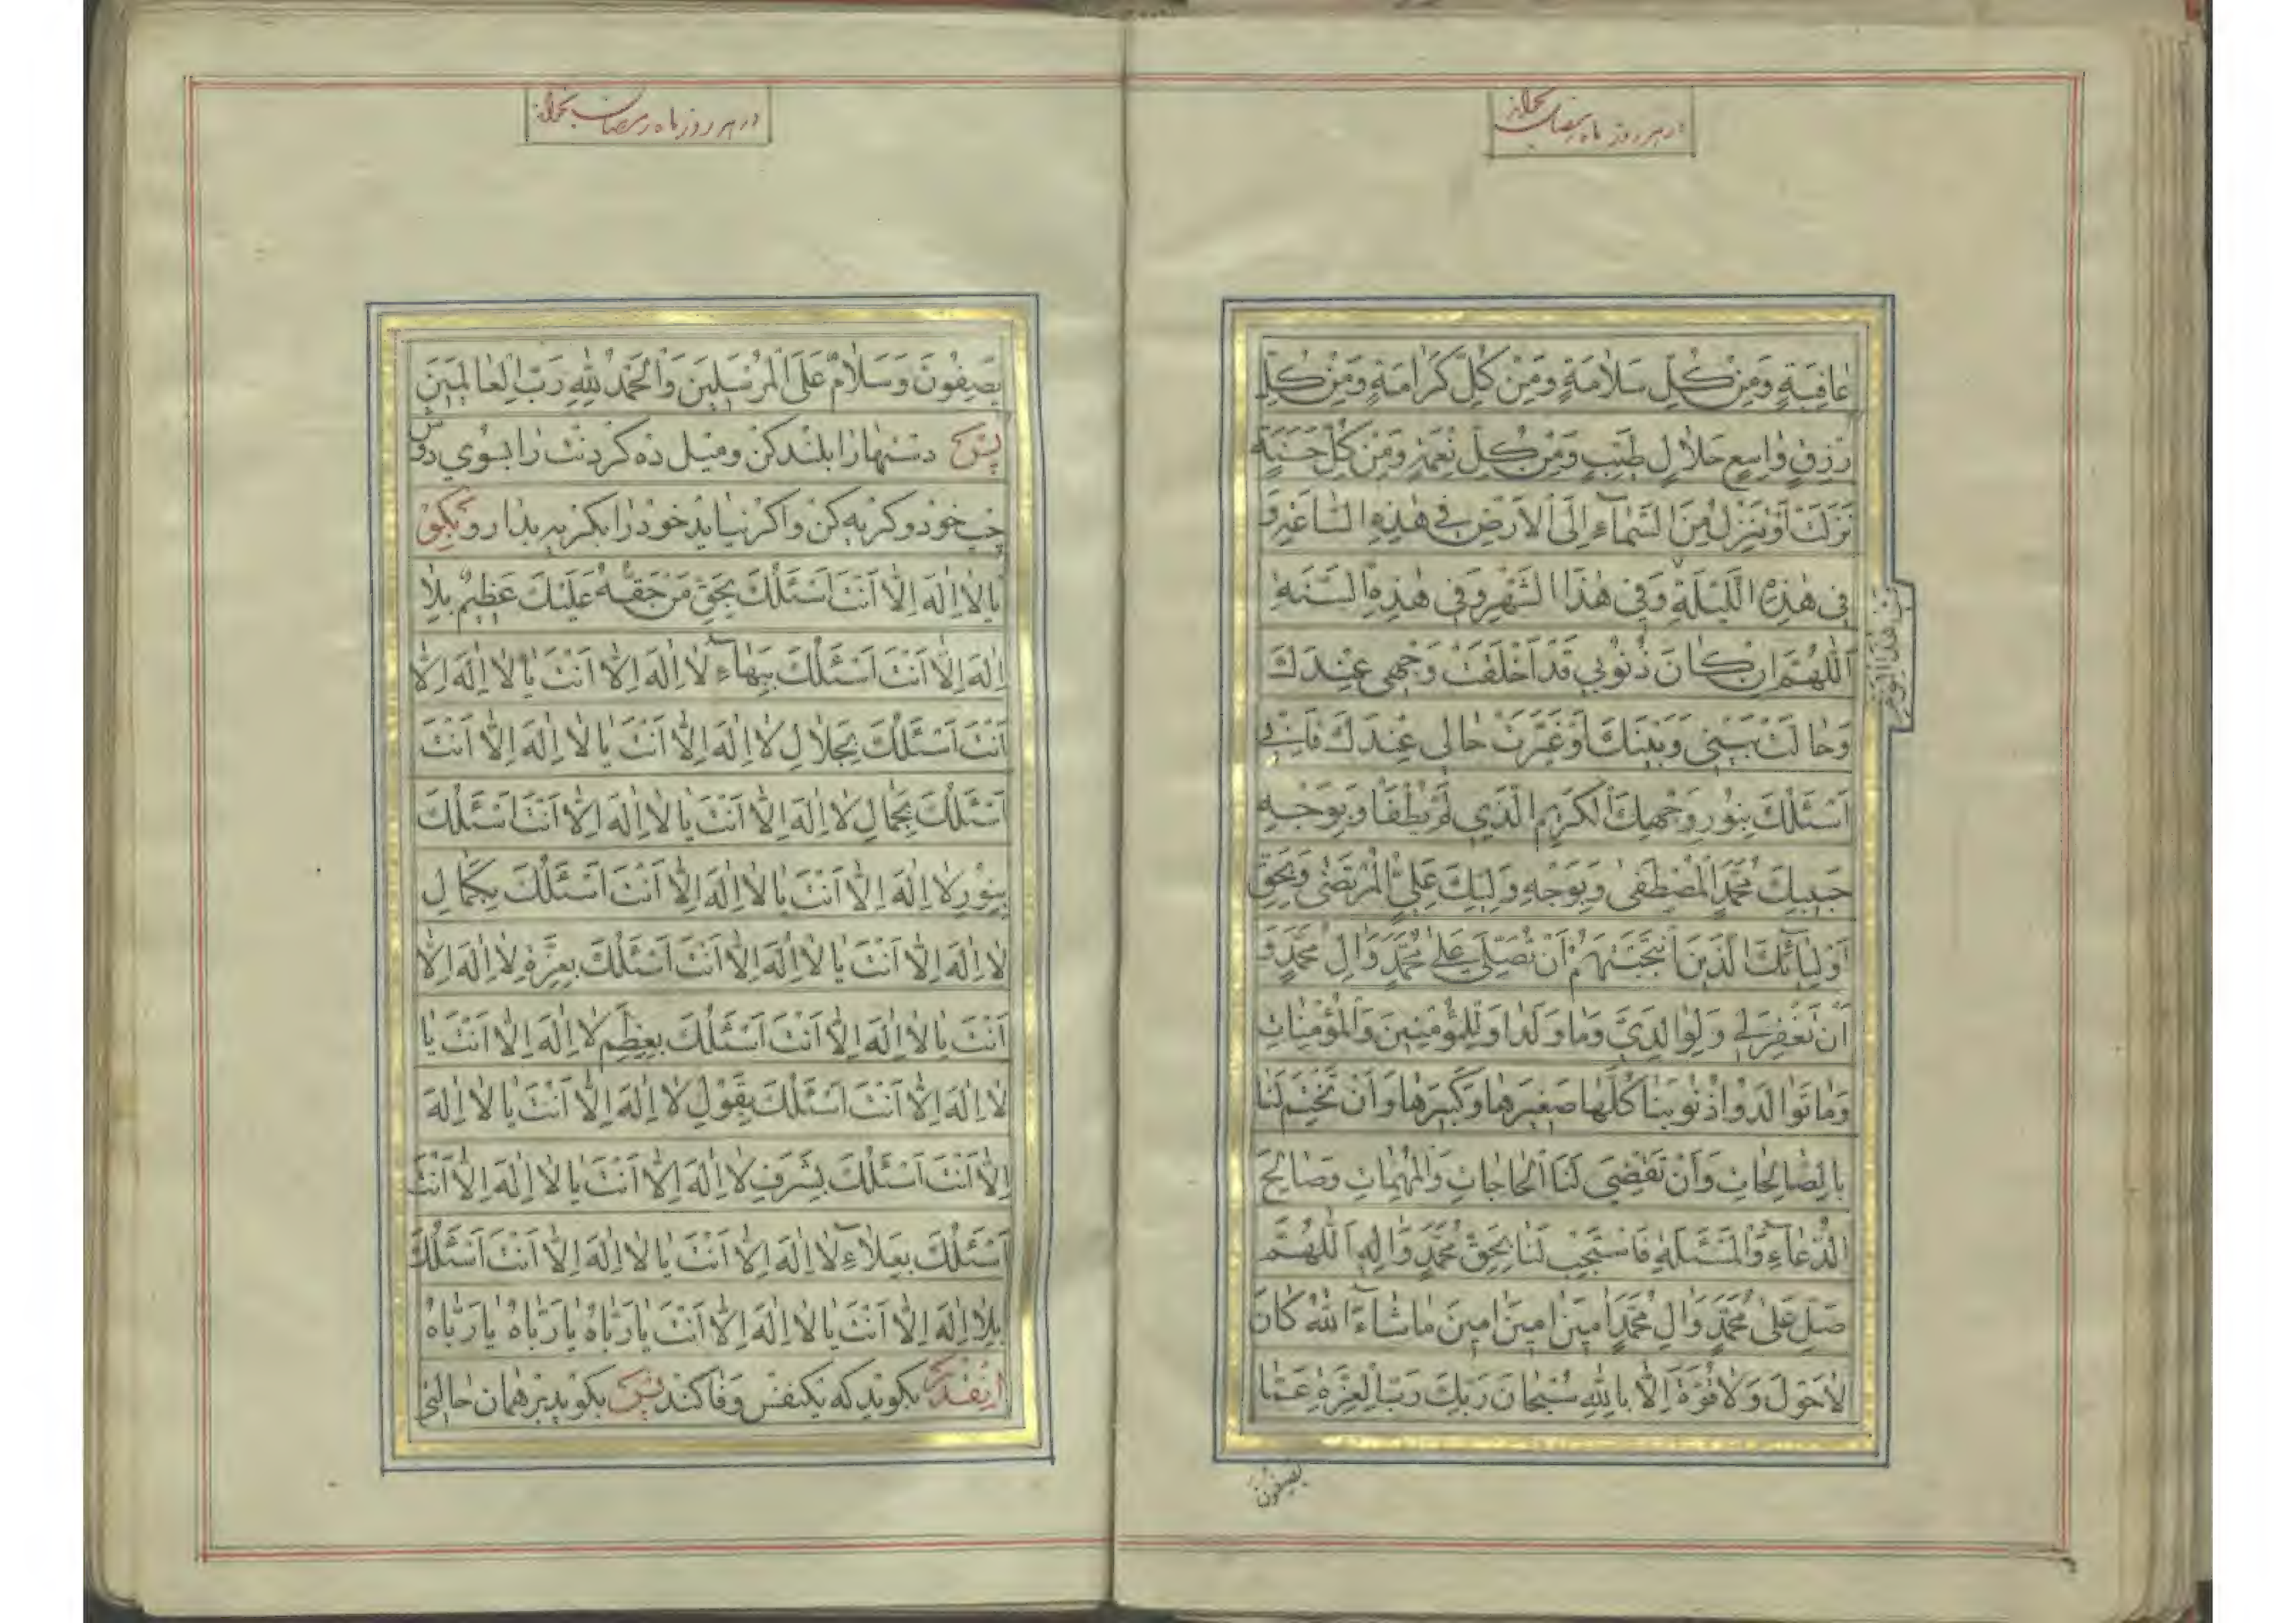 در هر روز ماه رمضان بخواند
عَافِيَةٍ وَمِنْ كُلِّ سَلَامَةٍ وَمِنْ كُلِّ كَرَامَةٍ وَمِنْ كُلِّ
رِزْقٍ وَاسِعٍ حَلَالٍ طَيِّبٍ وَمِنْ كُلِّ نِعْمَةٍ وَمِنْ كُلِّ حَسَنَةٍ
نَزَلَتْ أَوْ تَنْزِلُ مِنَ السَّمَاءِ إِلَى الْأَرْضِ فِي هَذِهِ السَّاعَةِ وَ
فِي هَذِهِ اللَّيْلَةِ وَفِي هَذَا الشَّهْرِ وَفِي هَذِهِ السَّنَةِ
في هذا اليوم
اَللَّهُمَّ إِنْ كَانَ ذُنُوبِي قَدْ أَخْلَقَتْ وَجْهِي عِنْدَكَ
وَحَالَتْ بَيْنِي وَبَيْنَكَ أَوْ غَيَّرَتْ حَالِي عِنْدَكَ فَإِنِّي
اَسْئَلُكَ بِنُورِ وَجْهِكَ الْكَرِيمِ الَّذِي لَمْ يُطْفَأْ وَبِوَجْهِ
حَبِيبِكَ مُحَمَّدٍ الْمُصْطَفَى وَبِوَجْهِ وَلِيِّكَ عَلِيٍّ الْمُرْتَضَى وَبِحَقِّ
أَوْلِيَائِكَ الَّذِينَ انْتَجَبْتَهُمْ أَنْ تُصَلِّيَ عَلَى مُحَمَّدٍ وَآلِ مُحَمَّدٍ وَ
أَنْ تَغْفِرَ لِي وَلِوَالِدَيَّ وَمَا وَلَدَا وَلِلْمُؤْمِنِينَ وَالْمُؤْمِنَاتِ
وَمَا تَوَالَدُوا ذُنُوبَنَا كُلَّهَا صَغِيرَهَا وَكَبِيرَهَا وَأَنْ تَخْتِمَ لَنَا
بِالصَّالِحَاتِ وَأَنْ تَقْضِيَ لَنَا الْحَاجَاتِ وَالْمُهِمَّاتِ وَصَالِحَ
الدُّعَاءِ وَالْمَسْئَلَةِ فَاسْتَجِبْ لَنَا بِحَقِّ مُحَمَّدٍ وَآلِهِ اَللَّهُمَّ
صَلِّ عَلَى مُحَمَّدٍ وَآلِ مُحَمَّدٍ آمِينَ آمِينَ آمِينَ مَا شَاءَ اللهُ كَانَ
لَا حَوْلَ وَلَا قُوَّةَ إِلَّا بِاللهِ سُبْحَانَ رَبِّكَ رَبِّ الْعِزَّةِ عَمَّا
يصفون
در هر روز ماه رمضان بخواند
يَصِفُونَ وَسَلَامٌ عَلَى الْمُرْسَلِينَ وَالْحَمْدُ لِلَّهِ رَبِّ الْعَالَمِينَ
پس دستها را بلند کن و میل ده گردنت را بسوی دوش
چپ خود و گریه کن و اگر نیاید خود را بگریه بدار و بگو
يَا لَا إِلَهَ إِلَّا أَنْتَ اَسْئَلُكَ بِحَقِّ مَنْ حَقُّهُ عَلَيْكَ عَظِيمٌ بِلَا
إِلَهَ إِلَّا أَنْتَ اَسْئَلُكَ بِبَهَاءِ لَا إِلَهَ إِلَّا أَنْتَ يَا لَا إِلَهَ إِلَّا
أَنْتَ اَسْئَلُكَ بِجَلَالِ لَا إِلَهَ إِلَّا أَنْتَ يَا لَا إِلَهَ إِلَّا أَنْتَ
اَسْئَلُكَ بِجَمَالِ لَا إِلَهَ إِلَّا أَنْتَ يَا لَا إِلَهَ إِلَّا أَنْتَ اَسْئَلُكَ
بِنُورِ لَا إِلَهَ إِلَّا أَنْتَ يَا لَا إِلَهَ إِلَّا أَنْتَ اَسْئَلُكَ بِكَمَالِ
لَا إِلَهَ إِلَّا أَنْتَ يَا لَا إِلَهَ إِلَّا أَنْتَ اَسْئَلُكَ بِعِزَّةِ لَا إِلَهَ إِلَّا
أَنْتَ يَا لَا إِلَهَ إِلَّا أَنْتَ اَسْئَلُكَ بِعِظَمِ لَا إِلَهَ إِلَّا أَنْتَ يَا
لَا إِلَهَ إِلَّا أَنْتَ اَسْئَلُكَ بِقَوْلِ لَا إِلَهَ إِلَّا أَنْتَ يَا لَا إِلَهَ
إِلَّا أَنْتَ اَسْئَلُكَ بِشَرَفِ لَا إِلَهَ إِلَّا أَنْتَ يَا لَا إِلَهَ إِلَّا أَنْتَ
اَسْئَلُكَ بِعَلَاءِ لَا إِلَهَ إِلَّا أَنْتَ يَا لَا إِلَهَ إِلَّا أَنْتَ اَسْئَلُكَ
بِلَا إِلَهَ إِلَّا أَنْتَ يَا لَا إِلَهَ إِلَّا أَنْتَ يَا رَبَّاهُ يَا رَبَّاهُ يَا رَبَّاهُ
اینقدر بگوید که یکنفس وفا کند پس بگوید بر همان حالتی